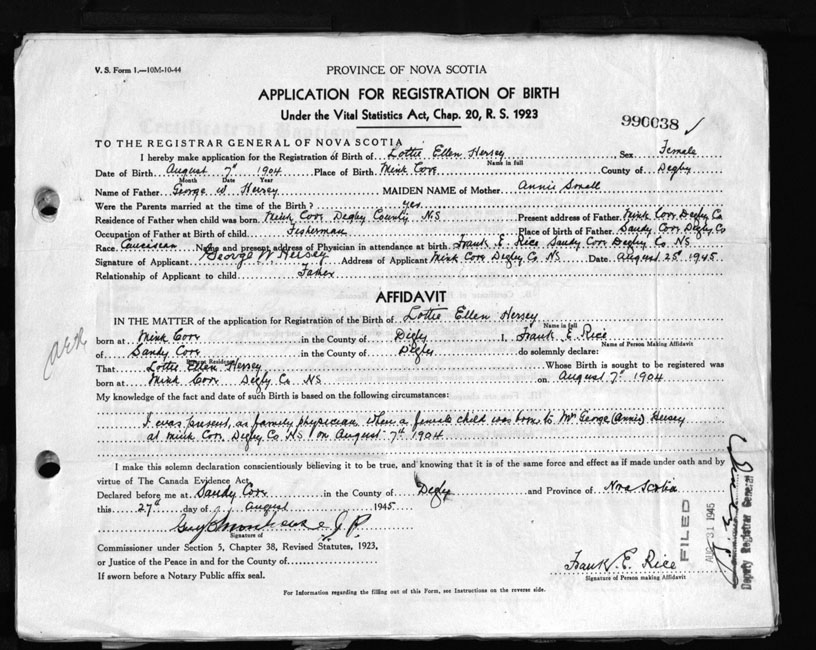 V. S. Form 1.—10M-10-44
PROVINCE OF NOVA SCOTIA
APPLICATION FOR REGISTRATION OF BIRTH
Under the Vital Statistics Act, Chap. 20, R. S. 1923
990038 ✓
TO THE REGISTRAR GENERAL OF NOVA SCOTIA
I hereby make application for the Registration of Birth of Lottie Ellen Hersey Sex Female
Name in full
Date of Birth August 7th 1904 Place of Birth Mink Cove County of Digby
Month Date Year
Name of Father George W Hersey MAIDEN NAME of Mother Annie
Were the Parents married at the time of the Birth? yes
Residence of Father when child was born Mink Cove Digby County NS Present address of Father Mink Cove Digby Co
Occupation of Father at Birth of child Fisherman Place of birth of Father Sandy Cove Digby Co
Race Caucisean Name and present address of Physician in attendance at birth Frank E. Rice Sandy Cove Digby Co NS
Signature of Applicant George W Hersey Address of Applicant Mink Cove Digby Co NS Date August 25th 1945
Relationship of Applicant to child Father
AFFIDAVIT
IN THE MATTER of the application for Registration of the Birth of Lottie Ellen Hersey
Name in full
born at Mink Cove in the County of Digby I, Frank E. Rice
Name of Person Making Affidavit
of Sandy Cove in the County of Digby do solemnly declare:
Present Residence
That Lottie Ellen Hersey Whose Birth is sought to be registered was
born at Mink Cove Digby Co NS on August 7th 1904
My knowledge of the fact and date of such Birth is based on the following circumstances:
I was present, as family physician when a female child was born to Mrs George (Annie) Hersey
at Mink Cove, Digby Co N.S. on August 7th 1904
I make this solemn declaration conscientiously believing it to be true, and knowing that it is of the same force and effect as if made under oath and by
virtue of The Canada Evidence Act.
Declared before me at Sandy Cove in the County of Digby and Province of Nova Scotia
this 27th day of August 1945
J.P.
Signature of
Commissioner under Section 5, Chapter 38, Revised Statutes, 1923,
or Justice of the Peace in and for the County of
If sworn before a Notary Public affix seal.
Frank E. Rice
Signature of Person making Affidavit
For Information regarding the filling out of this Form, see Instructions on the reverse side.
FILED
AUG 31 1945
Deputy Registrar General